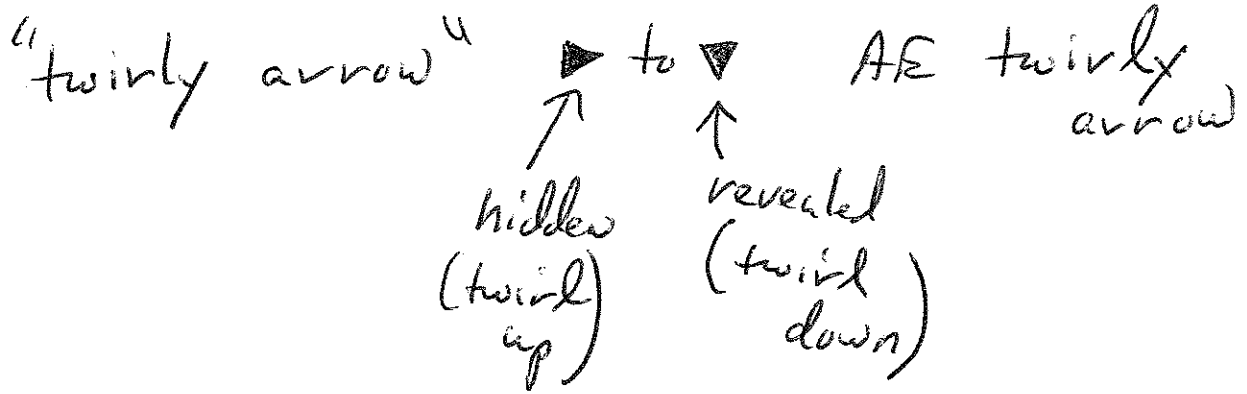 "twirly arrow" ▶ to ▼ AE twirly
arrow
hidden
(twirl
up)
revealed
(twirl
down)